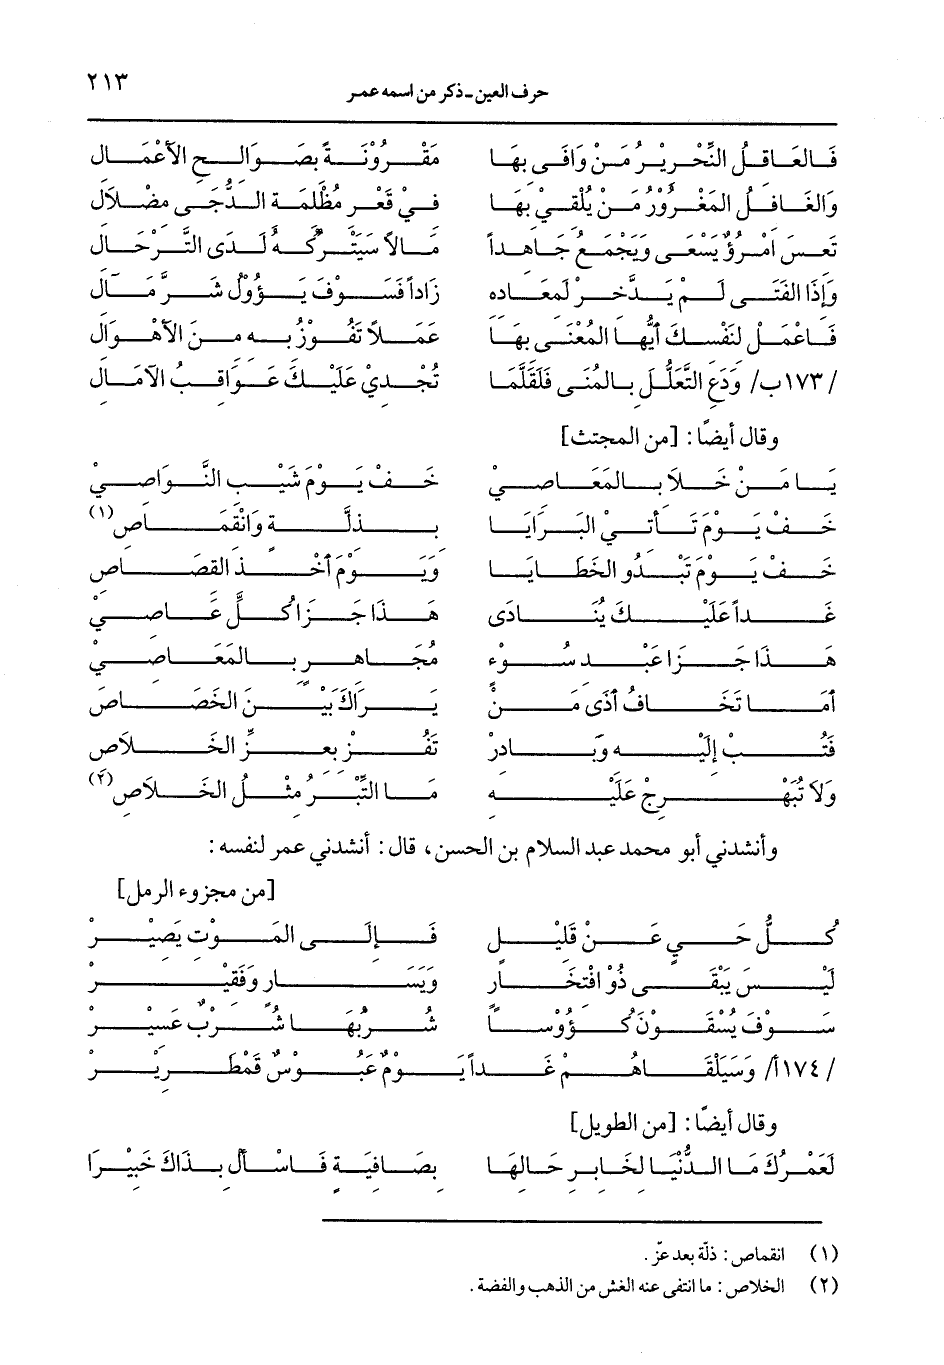 حرف العين ـ ذكر من اسمه عمر ٢١٣
فَالعَاقِلُ النِّحْرِيْرُ مَنْ وَافَى بِهَا مَقْرُوْنَةً بِصَوَالِحِ الأَعْمَالِ
وَالغَافِلُ المَغْرُوْرُ مَنْ يُلْقِيْ بِهَا فِيْ قَعْرِ مُظْلِمَةِ الدُّجَى مِضْلَالِ
تَعِسَ امْرُؤٌ يَسْعَى وَيَجْمَعُ جَاهِداً مَالاً سَيَتْرُكُهُ لَدَى التَّرْحَالِ
وَإِذَا الفَتَى لَمْ يَدَّخِرْ لِمَعَادِهِ زَاداً فَسَوْفَ يَؤُوْلُ شَرَّ مَآلِ
فَاعْمَلْ لِنَفْسِكَ أَيُّهَا المُعْنَى بِهَا عَمَلاً تَفُوْزُ بِهِ مِنَ الأَهْوَالِ
/١٧٣ب/ وَدَعِ التَّعَلُّلَ بِالمُنَى فَلَقَلَّمَا تُجْدِيْ عَلَيْكَ عَوَاقِبُ الآمَالِ
وقال أيضًا: [من المجتث]
يَا مَنْ خَلَا بِالمَعَاصِيْ خَفْ يَوْمَ شَيْبِ النَّوَاصِيْ
خَفْ يَوْمَ تَأْتِيْ البَرَايَا بِذِلَّةٍ وَانْقِمَاصِ(١)
خَفْ يَوْمَ تَبْدُو الخَطَايَا وَيَوْمَ أَخْذِ القِصَاصِ
غَداً عَلَيْكَ يُنَادَى هَذَا جَزَا كُلِّ عَاصِيْ
هَذَا جَزَا عَبْدِ سُوْءٍ مُجَاهِرٍ بِالمَعَاصِيْ
أَمَا تَخَافُ أَذَى مَنْ يَرَاكَ بَيْنَ الخَصَاصِ
فَتُبْ إِلَيْهِ وَبَادِرْ تَفُزْ بِعِزِّ الخَلَاصِ
وَلَا تُبَهْرِجْ عَلَيْهِ مَا التِّبْرُ مِثْلُ الخَلَاصِ(٢)
وأنشدني أبو محمد عبد السلام بن الحسن، قال: أنشدني عمر لنفسه:
[من مجزوء الرمل]
كُلُّ حَيٍ عَنْ قَلِيْلٍ فَإِلَى المَوْتِ يَصِيْرُ
لَيْسَ يَبْقَى ذُوْ افْتِخَارٍ وَيَسَارٍ وَفَقِيْرُ
سَوْفَ يُسْقَوْنَ كُؤُوْسًا شُرْبُهَا شُرْبٌ عَسِيْرُ
/١٧٤أ/ وَسَيَلْقَاهُمْ غَداً يَوْمٌ عَبُوْسٌ قَمْطَرِيْرُ
وقال أيضًا: [من الطويل]
لَعَمْرُكَ مَا الدُّنْيَا لِخَابِرِ حَالِهَا بِصَافِيَةٍ فَاسْأَلْ بِذَاكَ خَبِيْرَا
(١) انقماص: ذلّة بعد عزّ.
(٢) الخلاص: ما انتفى عنه الغش من الذهب والفضة.